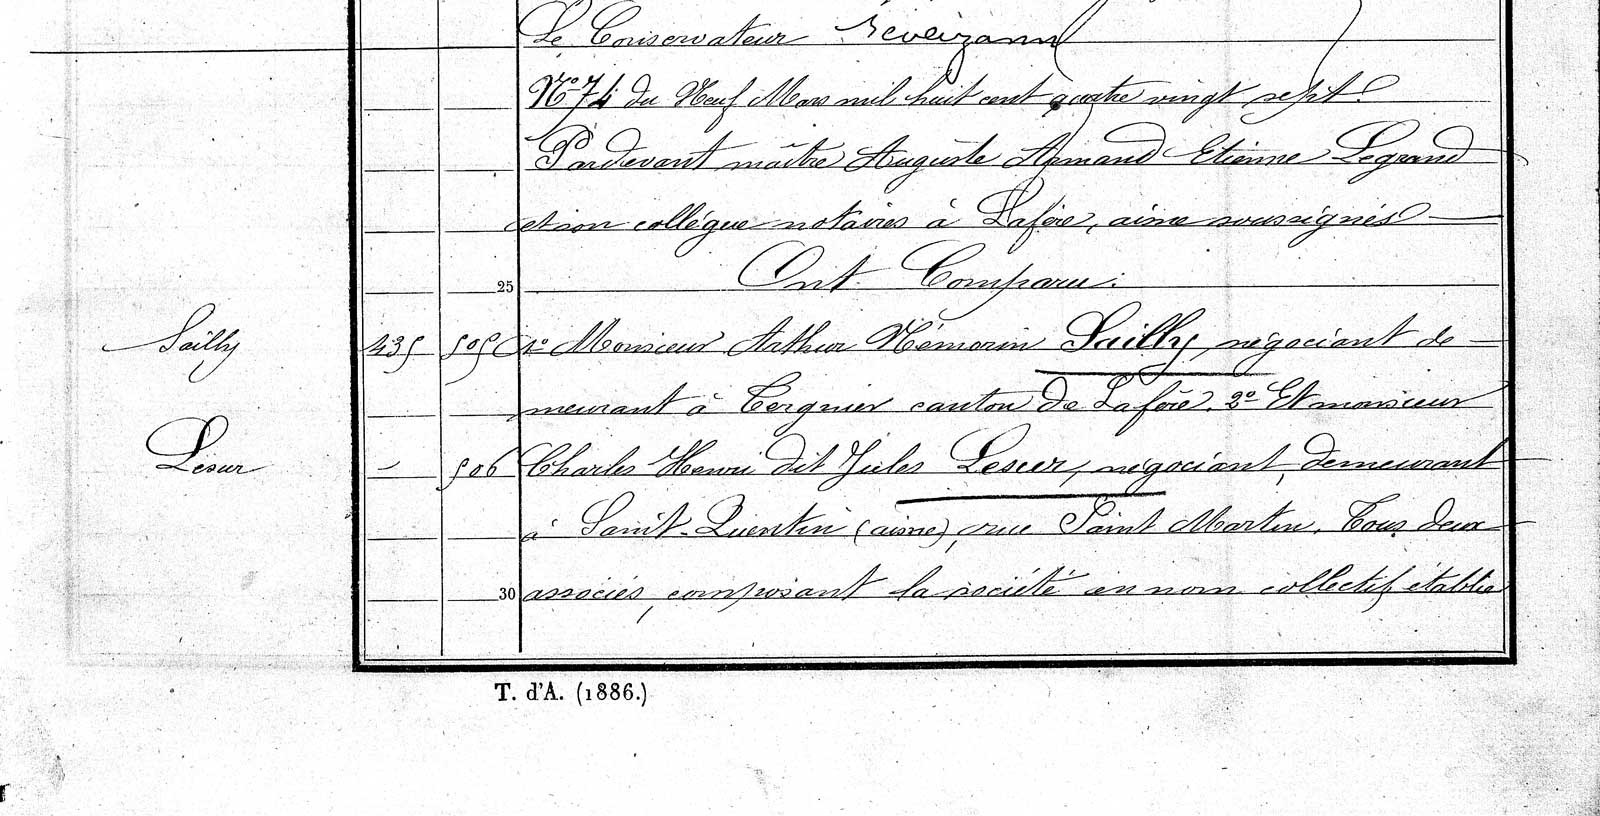 Le Conservateur
N° 74 du Neuf Mars mil huit cent quatre vingt sept.
Pardevant maître Auguste Armand Etienne Legrand
et son collégue notaires à Lafère, aisne soussignés
25 Ont Comparu:
Sailly 435 505 1° Monsieur Arthur Némorin Sailly, négociant de
meurant à Tergnier canton de Lafère. 2° Et monsieur
Lesur - 506 Charles Henri dit Jules Lesur, négociant, demeurant
à Saint-Quentin (aisne), rue Saint Martin. Tous deux
30 associés, composant la société en nom collectif établie
T. d'A. (1886.)